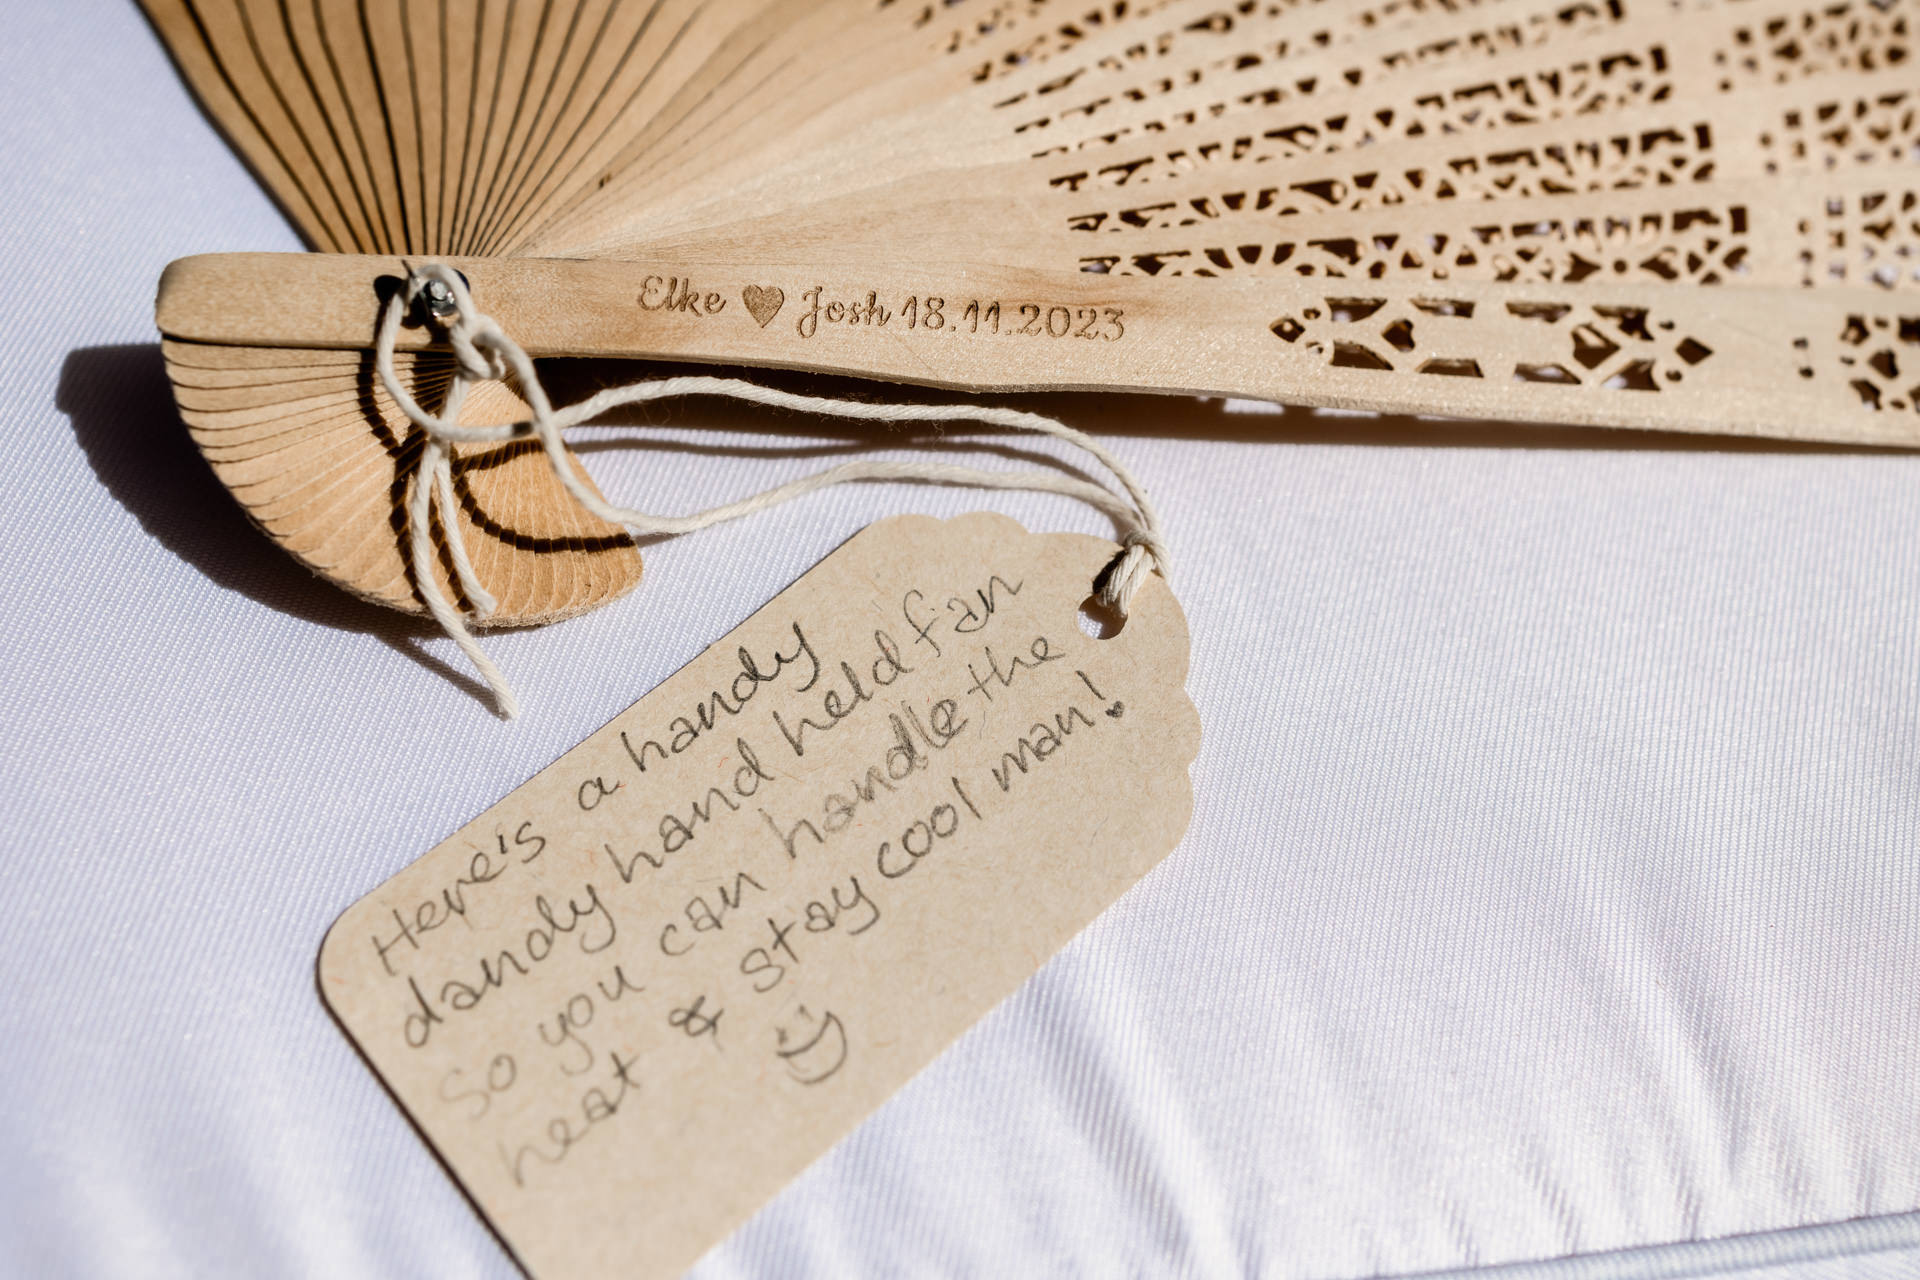 Elke ♥ Josh 18.11.2023
Here's a handy
dandy hand held fan
so you can handle the
heat & stay cool man!